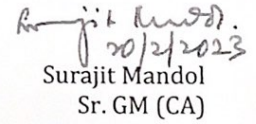 Surajit Mandol.
20/2/2023
Surajit Mandol
Sr. GM (CA)